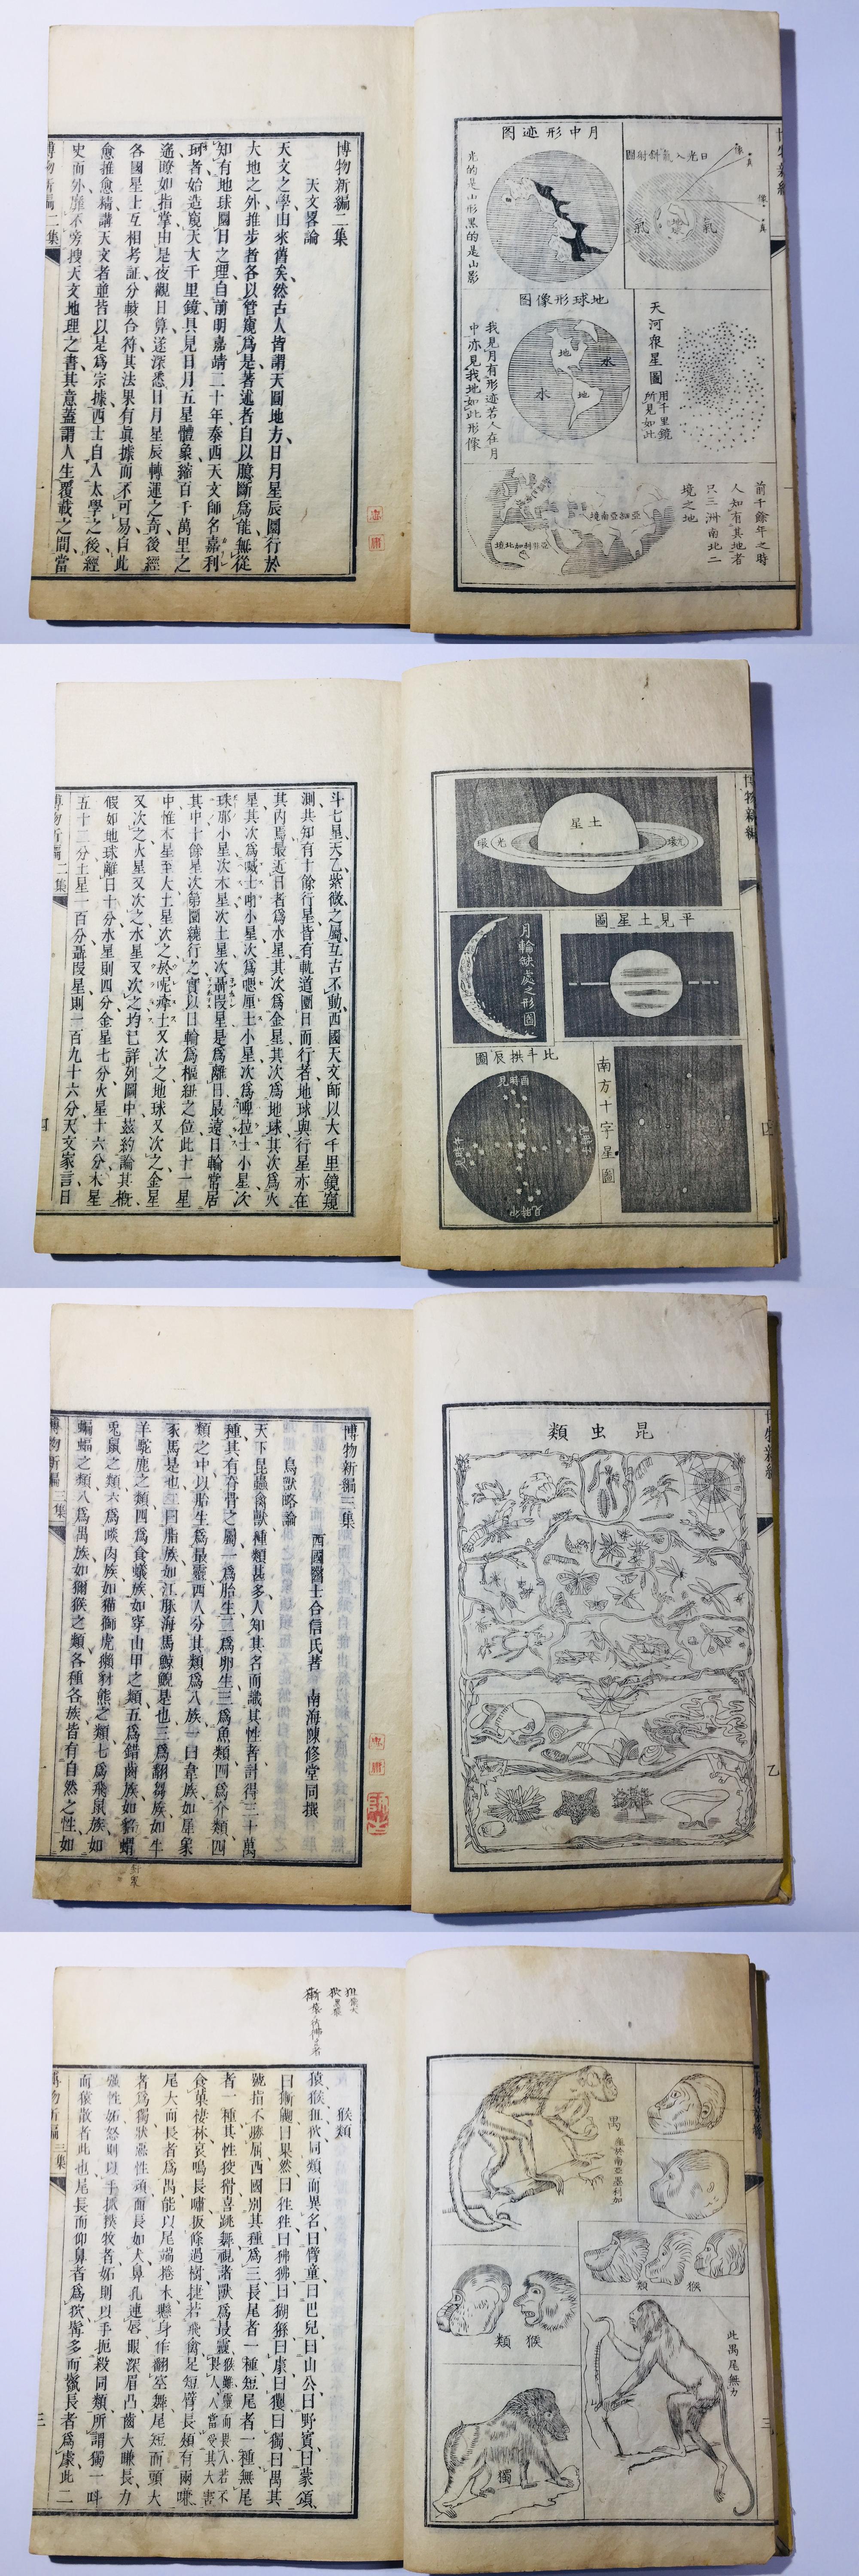 博物新編
日光入氣斜射圖
像
真
像
真
氣
地
氣
月中形迹图
光的是山形黑的是山影
天河衆星圖
用千里鏡
所見如此
地球形像圖
地
水
水
地
我見月有形迹若人在月
中亦見我地如此形像
前千餘年之時
人知有其地者
只三洲南北二
境之地
亞細亞南境
亞非利加北境
一
博物新編二集
天文畧論
天文之學由來舊矣然古人皆謂天圓地方日月星辰圍行於
大地之外推步者各以管窺爲是著述者自以臆斷爲能無從
知有地球圓日之理自前明嘉靖二十年泰西天文師名嘉利
珂者始造窺天大千里鏡具見日月五星體象縮百千萬里之
遙瞭如指掌由是夜觀日算遂深悉日月星辰轉運之奇後經
各國星士互相考証分較合符其法果有眞據而不可易自此
愈推愈精講天文者並皆以是爲宗據西士自入太學之後經
史而外靡不旁搜天文地理之書其意蓋謂人生覆載之間當
博物新編二集
一
博物新編
土星
光環
光環
平見土星圖
月輪缺處之形圖
南方十字星圖
北斗拱辰圖
酉時見
子時見
卯時見
午時見
四
斗七星天乙紫微之屬互古不動西國天文師以大千里鏡窺
測共知有十餘行星皆有軌道圍日而行者地球與行星亦在
其內焉最近日者爲水星其次爲金星其次爲地球其次爲火
星其次爲啵士啲小星次爲嗯厘士小星次爲啤拉士小星次
珠那小星次木星次土星次聶段星是爲離日最遠日輪常居
其中十餘星次第圍繞行之實以日輪爲樞紐之位此十一星
中惟木星至大土星次之於呢瘏士又次之地球又次之金星
又次之火星又次之水星又次之均已詳列圖中茲約論其概
假如地球離日十分水星則四分金星七分火星十六分木星
五十二分土星一百分聶段星則一百九十六分天文家言日
博物新編二集
四
博物新編
昆虫類
乙
博物新編三集
西國醫士合信氏著 南海陳修堂同撰
鳥獸略論
天下昆蟲禽獸種類甚多人知其名而識其性者計得三十萬
種其有脊骨之屬一爲胎生二爲卵生三爲魚類四爲介類四
類之中以胎生爲最靈西人分其類爲八族一曰韋族如犀象
豕馬是也二曰脂族如江豚海馬鯨鯢是也三爲翻芻族如牛
羊駝鹿之類四爲食蟻族如穿山甲之類五爲錯齒族如貉蝟
兎鼠之類六爲啖肉族如猫獅虎獺豺熊之類七爲飛鼠族如
蝙蝠之類八爲禺族如獼猴之類各種各族皆有自然之性如
博物新編三集
一
禺
產於南亞墨利加
猴類
猴類
此禺尾無力
獨
三
猴類
猿猴狙狖同類而異名曰臂童曰巴兒曰山公曰野賓曰蒙頌
曰獑䶉曰果然曰狌狌曰狒狒曰猢猻曰豦曰玃曰獨曰禺其
號指不勝屈西國別其種爲三長尾者一種短尾者一種無尾
者一種其性狡猾喜跳舞視諸獸爲最靈猴雖靈而畏人若不畏人人當受其大害
食菓棲林哀鳴長嘯扳條過樹捷若飛禽足短臂長頰有兩嗛
尾大而長者爲禺能以尾端捲木懸身作翻筌舞尾短而頭大
者爲獨狀惡性頑面長如犬鼻孔連唇眼深眉凸齒大嗛長力
強性妬怒則以手抓挨牧者妬則以手扼殺同類所謂獨一呌
而猿散者此也尾長而仰鼻者爲狖髯多而鬣長者爲豦此二
博物新編三集
三